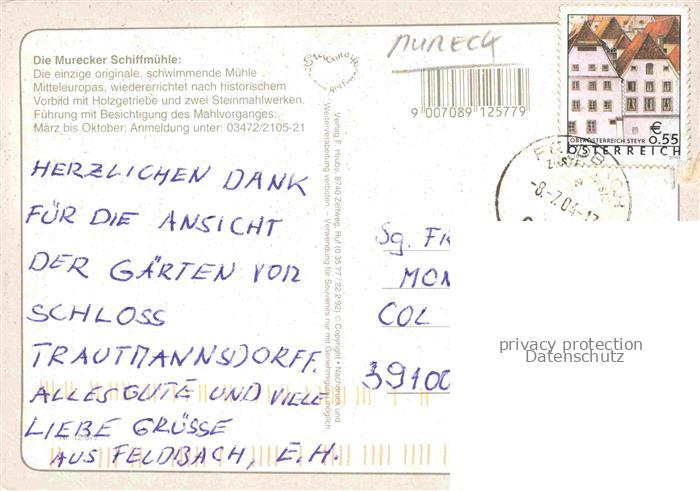 Die Murecker Schiffmühle:
Die einzige originale, schwimmende Mühle
Mitteleuropas, wiedererrichtet nach historischem
Vorbild mit Holzgetriebe und zwei Steinmahlwerken.
Führung mit Besichtigung des Mahlvorganges:
März bis Oktober: Anmeldung unter: 03472/2105-21
MURECK
9 007089 125779
€
0.55
OBERÖSTERREICH STEYR
ÖSTERREICH
-8.-7.04-17
Verlag F. Hruby, 8740 Zeltweg, Ruf (0 35 77 / 22 2 92) © Copyright • Nachdruck und
Weiterverarbeitung verboten. – Verwendung für Souvenirs nur mit Genehmigung möglich.
HERZLICHEN DANK
FÜR DIE ANSICHT
DER GÄRTEN VON
SCHLOSS
TRAUTMANNSDORFF.
ALLES GUTE UND VIELE
LIEBE GRÜSSE
AUS FELDBACH, E.H.
Sg. FR
MON
COL
39100
privacy protection
Datenschutz